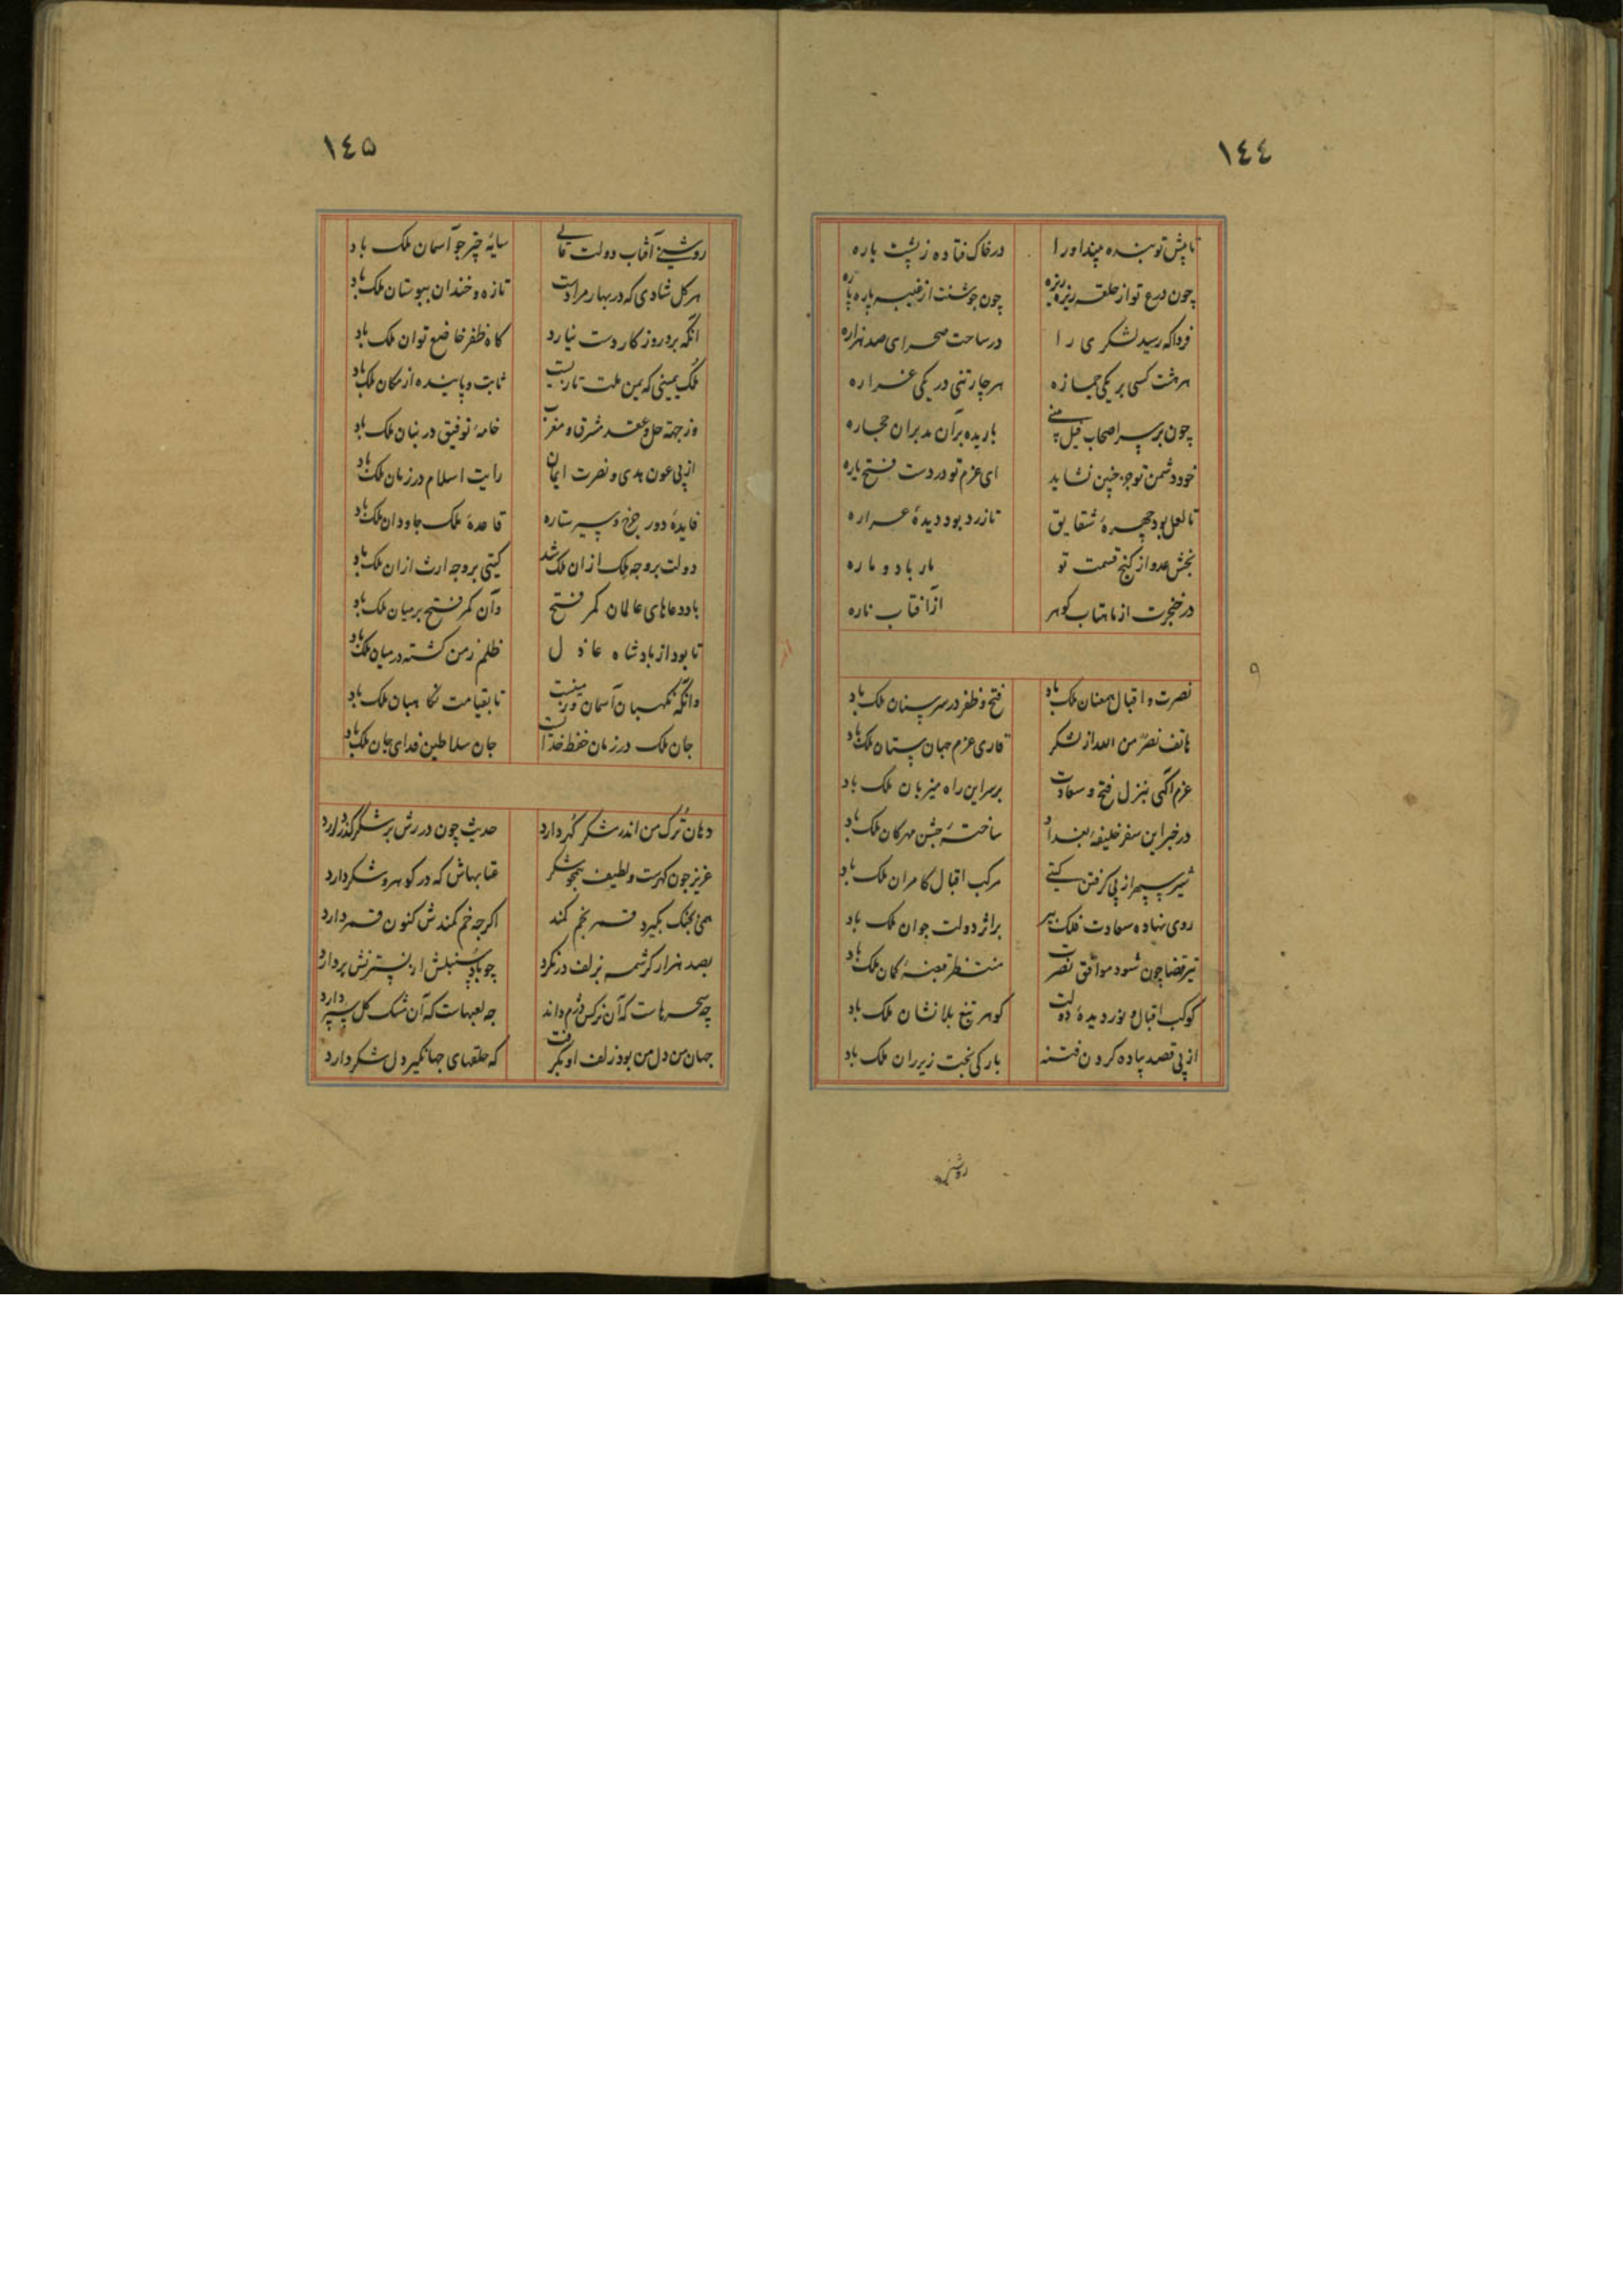 ١٤٤
تا پیش تو بنده میند او را در خاک فتاده ز پشت باره
چون درع تو از حلقه ریزه ریزه چون جوشنت از غیبه پاره پاره
فردا که رسید لشکری را در ساحت صحرای صد هزاره
هر هشت کسی بر یکی جمازه هر چارتنی در یکی غراره
چون بر سر اصحاب فیل باریده بر آن مدبران حجاره
خود دشمن تو جز چنین نشاید ای عزم تو در دست فتح یاره
تا لعل بود چهرهٔ شقایق تا زرد بود دیدهٔ عراره
بخش عدو از گنج قسمت تو مار باد و ماره
در خنجرت از ماهتاب گوهر از آفتاب ناره
نصرت و اقبال همعنان ملک باد فتح و ظفر در سر سنان ملک باد
هاتف نصر من الله از لشکر قاری عزم جهان ستان ملک باد
عزم آگهی بمنزل فتح و سعادت بر سر این راه میزبان ملک باد
در خبر این سفر خلیفهٔ بغداد ساختهٔ جشن مهرکان ملک باد
شیر سپهر از پی گرفتن گیتی مرکب اقبال کامران ملک باد
روی نهاده سعادت فلک پیر بر اثر دولت جوان ملک باد
تیر قضا چون شود موافق نصرت منتظر قبضهٔ کمان ملک باد
کوکب اقبال و نور دیدهٔ دولت گوهر تیغ بلا نشان ملک باد
از پی قصد پیاده کردن فتنه بارکی بخت زیر ران ملک باد
روشنی
١٤٥
روشنی آفتاب دولت عالی سایهٔ چتر چو آسمان ملک باد
هر گل شادی که در بهار مرادست تازه و خندان ببوستان ملک باد
آنکه برد روز کار دست نیارد گاه ظفر خاضع توان ملک باد
ملک یمینی که یمن ملت تازیست ثابت و پاینده از مکان ملک باد
وز جهة حل و عقد مشرق و مغرب خامهٔ توفیق در بنان ملک باد
از پی عون هدی و نصرت ایمان رایت اسلام در زمان ملک باد
فایدهٔ دور چرخ و سیر ستاره قاعدهٔ ملک جاودان ملک باد
دولت بر وجه ملک از آن ملک شد گیتی بر وجه ارث از آن ملک باد
باد دعاهای عالمان کمر فتح وآن کمر فتح بر میان ملک باد
تا بود از پادشاه عادل ظلم زمن گشته در میان ملک باد
وآنکه نگهبان آسمان و زمینست تا بقیامت نگاهبان ملک باد
جان ملک در زمان حفظ خداست جان سلاطین فدای جان ملک باد
دهان ترک من اندر شکر گهر دارد حدیث چون دررش بر شکر گذر دارد
عزیز چون گهرست و لطیف همچو شکر عتابهاش که در گوهر و شکر دارد
همی بجنگ بگیرد قمر بخم کمند اگرچه خم کمندش کنون قمر دارد
بصد هزار کرشمه بزلف در نگرد چو باد سنبلش از نسترنش بردارد
چه سحرهاست که آن نرگس دژم داند چه لعبهاست که آن مشک گل سپر دارد
جهان من دل من بود زلف او بگرفت که حلقهای جهانگیر دل شکر دارد